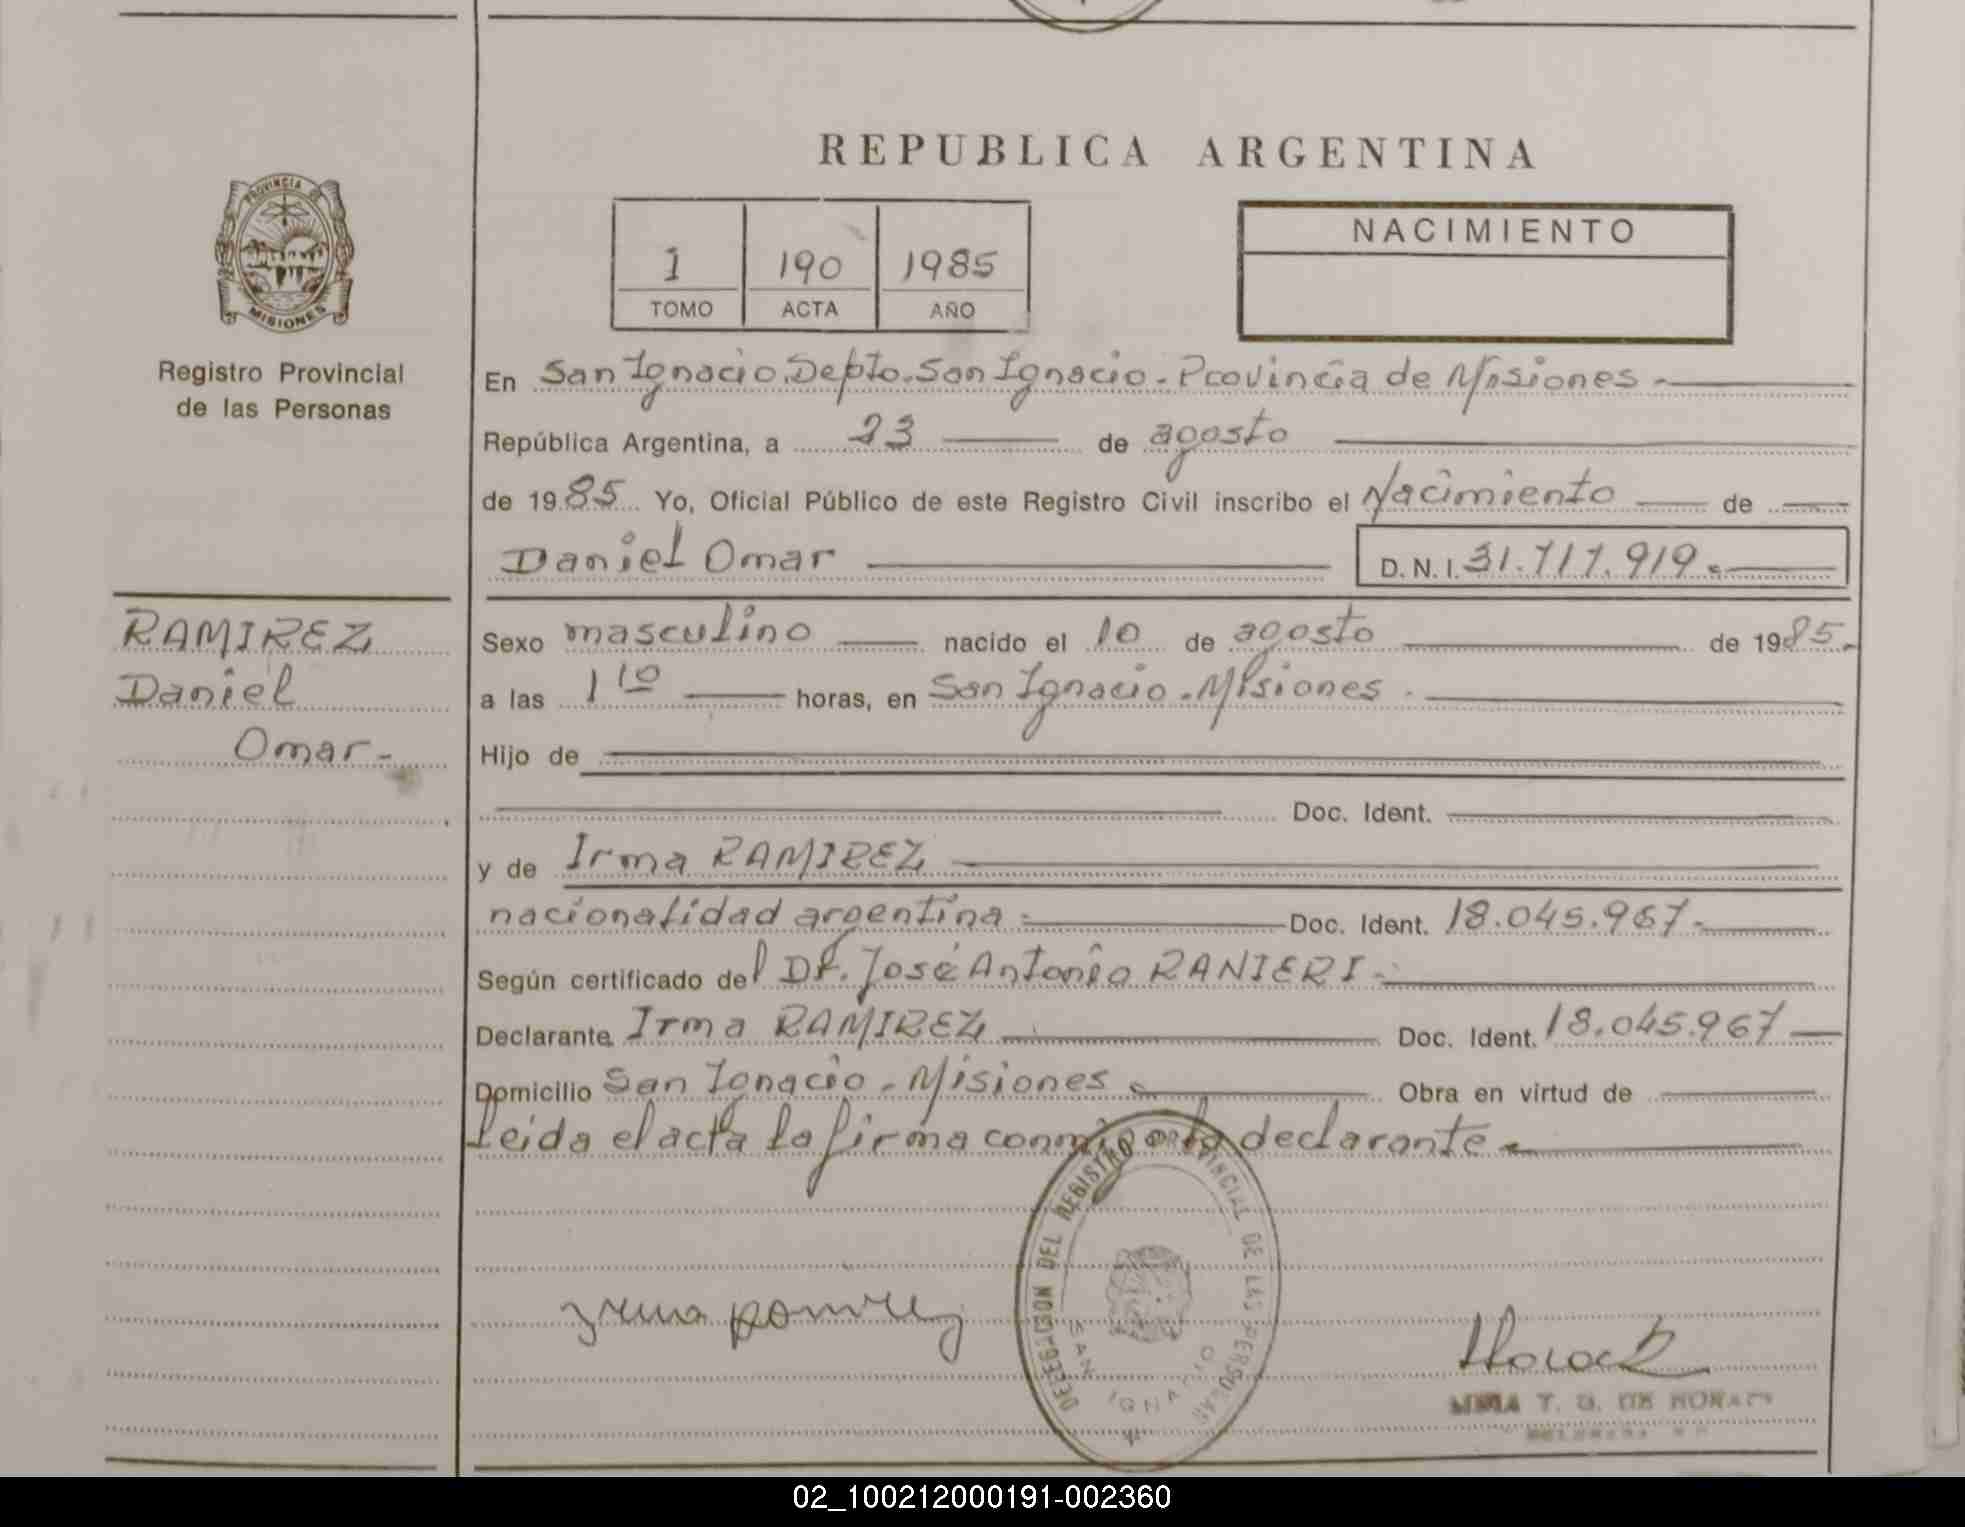 REPUBLICA ARGENTINA
PROVINCIA DE
MISIONES
Registro Provincial
de las Personas
1 190 1985
TOMO ACTA AÑO
NACIMIENTO
En San Ignacio. Depto. San Ignacio - Provincia de Misiones -
República Argentina, a 23 de agosto
de 1985 Yo, Oficial Público de este Registro Civil inscribo el Nacimiento de
Daniel Omar D.N.I. 31.717.919.-
RAMIREZ
Daniel
Omar -
Sexo masculino nacido el 10 de agosto de 1985.-
a las 1 10 horas, en San Ignacio - Misiones.
Hijo de
Doc. Ident.
y de Irma RAMIREZ
nacionalidad argentina - Doc. Ident. 18.045.967-
Según certificado del Dr. José Antonio RANIERI -
Declarante Irma RAMIREZ Doc. Ident. 18.045.967
Domicilio San Ignacio - Misiones - Obra en virtud de
Leida el acta la firma conmigo la declarante -
DELEGACION DEL REGISTRO PROVINCIAL DE LAS PERSONAS
SAN IGNACIO
Irma Ramirez
T. G. DE
02_100212000191-002360